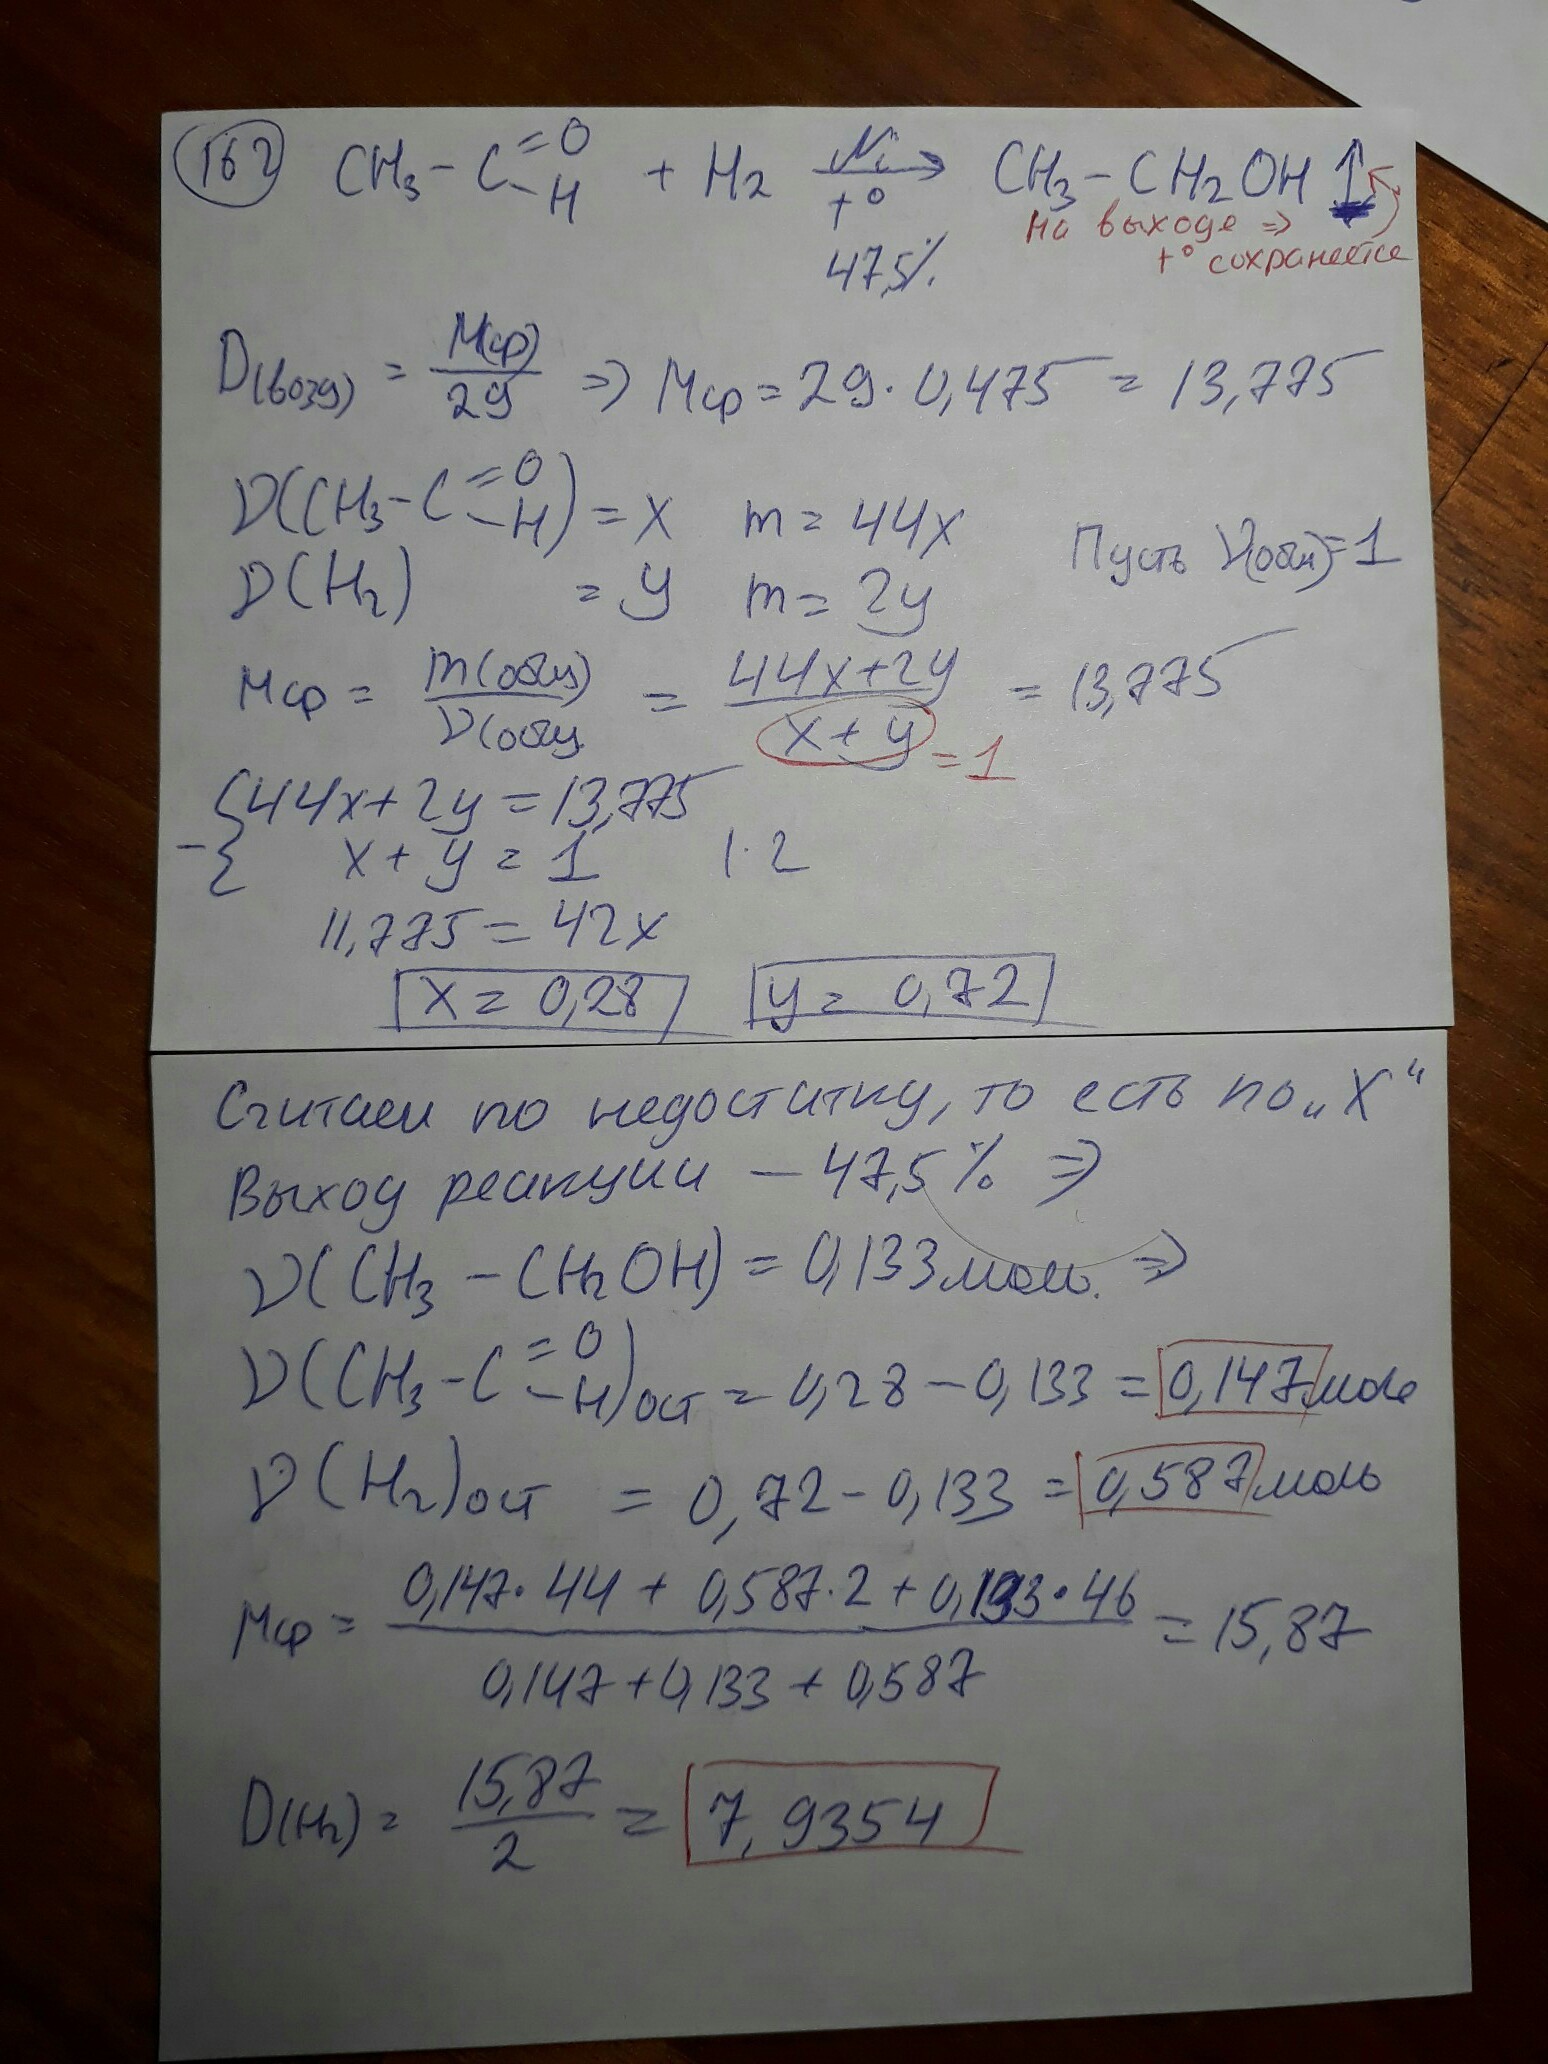 162 CH₃-C=O-H + H₂ Ni→ t° CH₃-CH₂OH↑
47,5%
на выходе ⇒
t° сохраняется
D(возд) = M(ср)/29 ⇒ Mср = 29·0,475 = 13,775
ν(CH₃-C=O-H) = x m = 44x
Пусть ν(общ)=1
ν(H₂) = y m = 2y
Mср = m(общ)/ν(общ) = (44x+2y)/(x+y) = 13,775
= 1
44x+2y = 13,775
- { x+y = 1 |·2
11,775 = 42x
x = 0,28 y = 0,72
Считаем по недостатку, то есть по „x“
Выход реакции – 47,5% ⇒
ν(CH₃-CH₂OH) = 0,133 моль. ⇒
ν(CH₃-C=O-H)ост = 0,28 - 0,133 = 0,147 моль
ν(H₂)ост = 0,72 - 0,133 = 0,587 моль
Mср = (0,147·44 + 0,587·2 + 0,133·46)/(0,147+0,133+0,587) = 15,87
D(H₂) = 15,87/2 = 7,9354